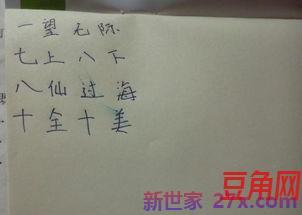 一望无际
七上八下
八仙过海
十全十美
豆角网
新世家 27x.com